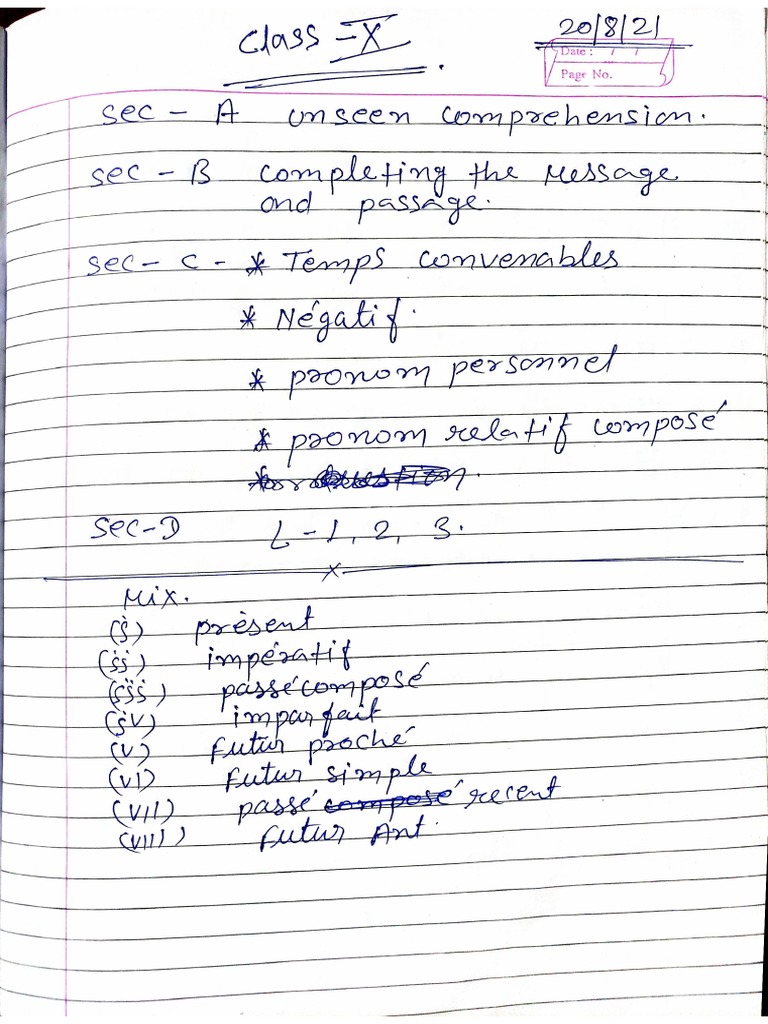 Class - X
20/8/21
Date : / /
Page No.
sec - A unseen comprehension.
sec - B completing the Message
and passage.
sec - C - * Temps convenables
* Négatif.
* pronom personnel
* pronom relatif composé
sec-D L - 1, 2, 3.
x
Mix.
(i) présent
(ii) impératif
(iii) passé composé
(iv) imparfait
(v) futur proché
(vi) futur simple
(vii) passé composé recent
(viii) futur Ant.